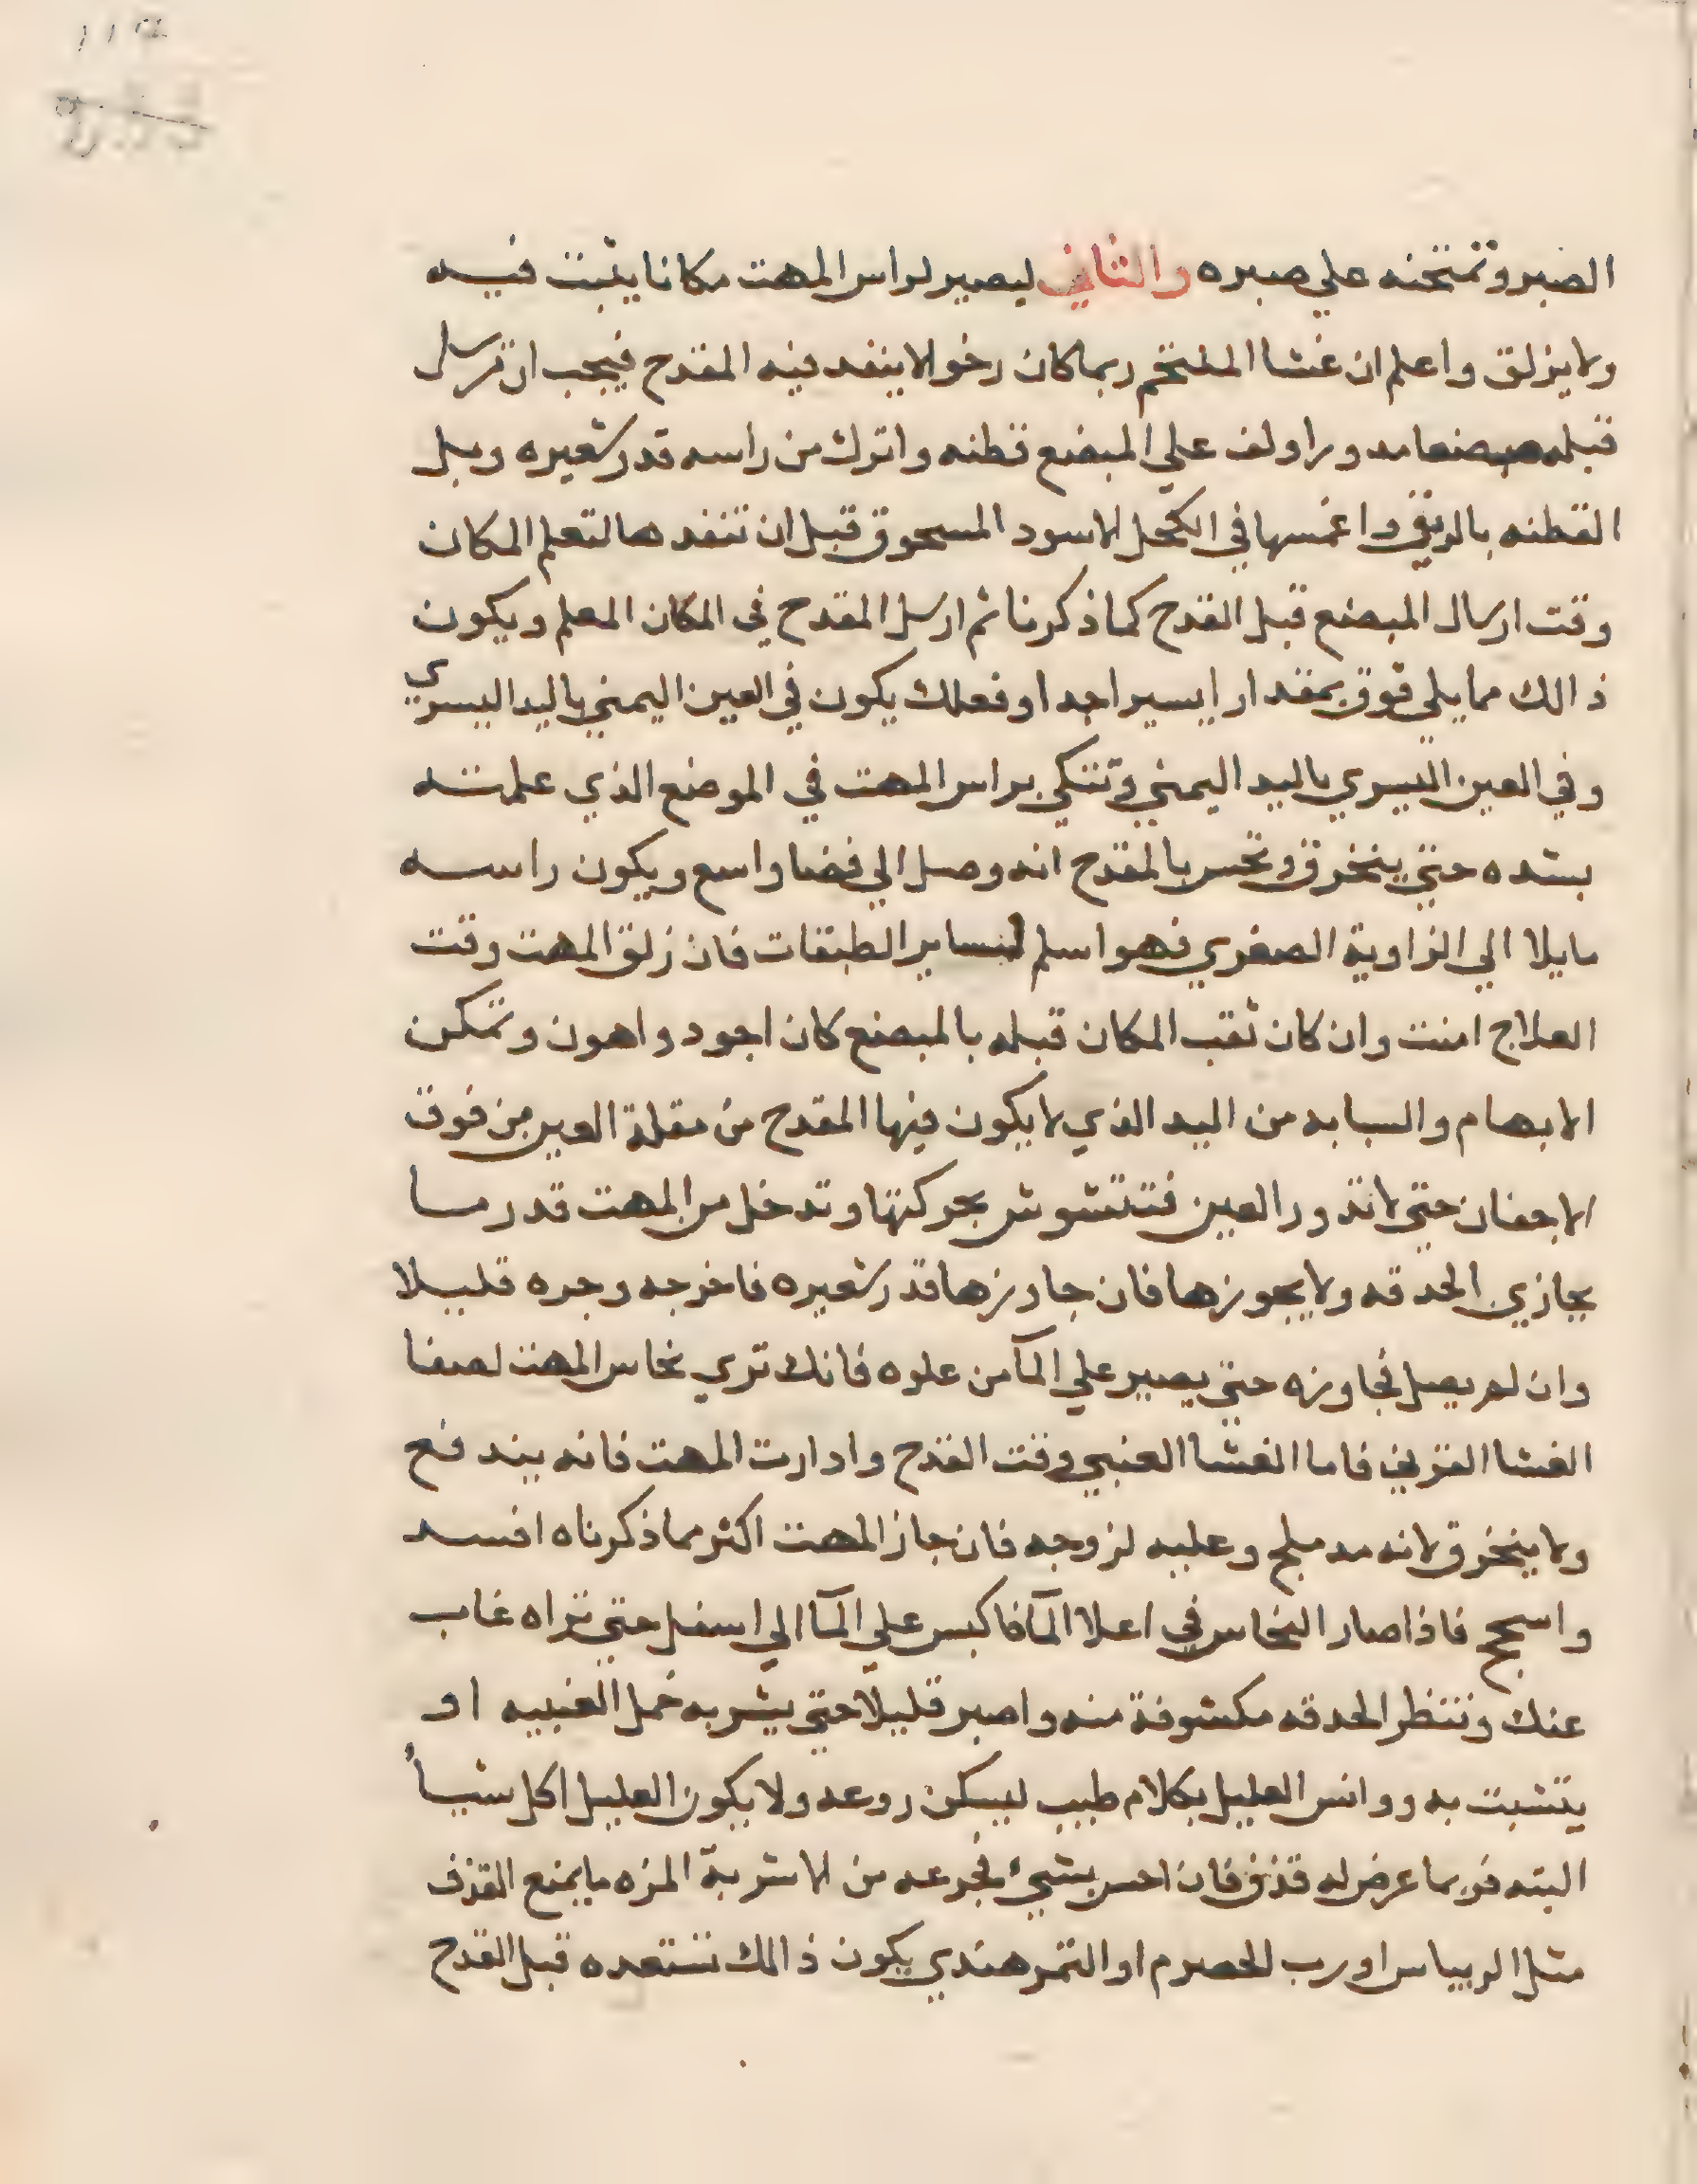 الصبر وتمتحنه علي صبره والثاني ليصير لراس المهت مكانا يثبت فيه
ولا يزلق واعلم ان غشا الملتحم ربما كان رخوا لا ينفد فيه المقدح فيجب ان ترسل
قبله مبضعا مدورا ولف علي المبضع قطنه واترك من راسه قدر شعيره وبل
القطنه بالريق واغمسها في الكحل الاسود المسحوق قبل ان تنفدها لتعلم المكان
وقت ارسال المبضع قبل القدح كما ذكرنا ثم ارسل المقدح في المكان المعلم ويكون
ذالك مما يلي فوق بمقدار ايسير اجدا وفعلك يكون في العين اليمني باليد اليسري
وفي العين اليسري باليد اليمني وتتكي براس المهت في الموضع الذي علمته
بشده حتي ينخرق وتحس بالمقدح انه وصل الي فضا واسع ويكون راسه
مايلا الي الزاوية الصغري فهو اسلم لساير الطبقات فان زلق المهت وقت
العلاج امنت وان كان ثقب المكان قبله بالمبضع كان اجود واهون وتمكن
الابهام والسبابه من اليد الذي لا يكون فيها المقدح من مقلة العين من فوق
الاجفان حتي لا تدور العين فتتشوش بحركتها وتدخل من المهت قدر ما
يحازي الحدقه ولا يجوزها فان جاوزها قدر شعيره فاخرجه وجره قليلا
وان لم يصل فجاوزه حتي يصير علي المآ من علوه فانك تري نحاس المهت لصفا
الغشا القرني فاما الغشا العنبي وقت القدح وادارت المهت فانه يندفع
ولا ينخرق لانه مدملج وعليه لزوجه فان جاز المهت اكثر مما ذكرناه افسد
واسحج فاذا صار النحاس في اعلا المآ فاكبس علي المآ الي اسفل حتي تراه غاب
عنك وتنتظر الحدقه مكشوفة منه واصبر قليلا حتي يشربه خمل العنبيه او
يتشبت به ووانس العليل بكلام طيب ليسكن روعه ولا يكون العليل اكل شيأ
البته فربما عرض له قذف فان احس بشيء فجرعه من الاشربة المزه ما يمنع القزف
مثل الريباس او رب الحصرم او التمر هندي يكون ذالك تستعده قبل القدح